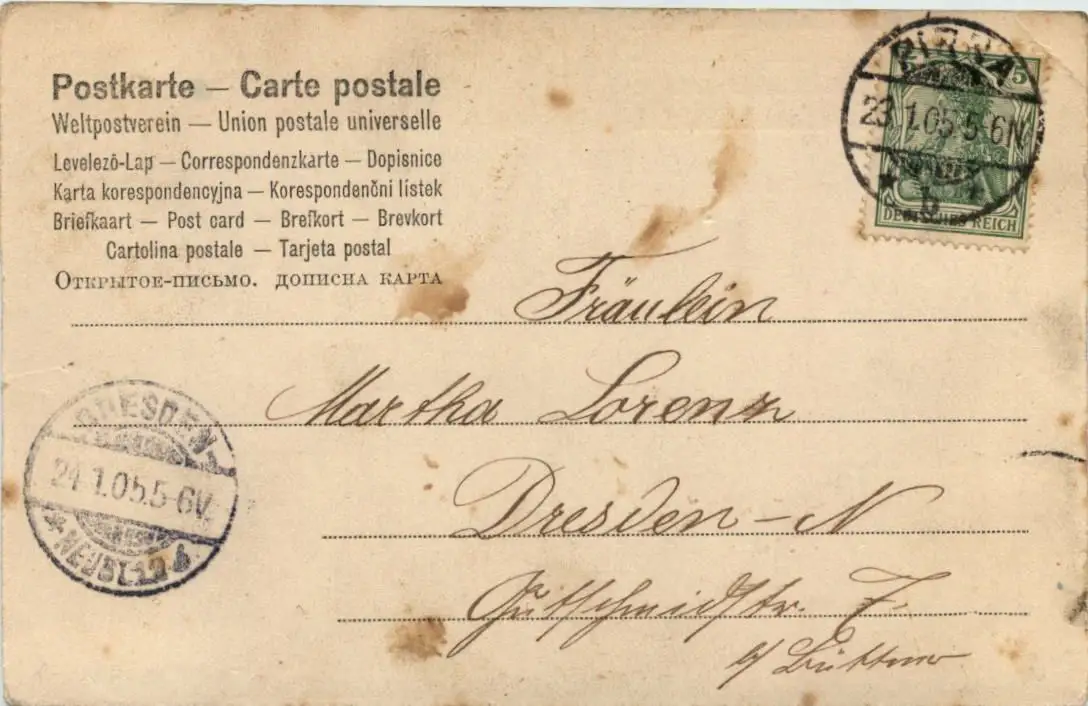 Postkarte — Carte postale
Weltpostverein — Union postale universelle
Levelező-Lap — Correspondenzkarte — Dopisnice
Karta korespondencyjna — Korespondenční lístek
Briefkaart — Post card — Brefkort — Brevkort
Cartolina postale — Tarjeta postal
Открытое-письмо. дописна карта
PIRNA
23.1.05.5-6N.
* b *
5
DEUTSCHES REICH
Fräulein
Martha Lorenz
Dresden-N
Gutschmidstr. 7.
b/ Büttner
DRESDEN-
24.1.05.5-6V.
* NEUST.